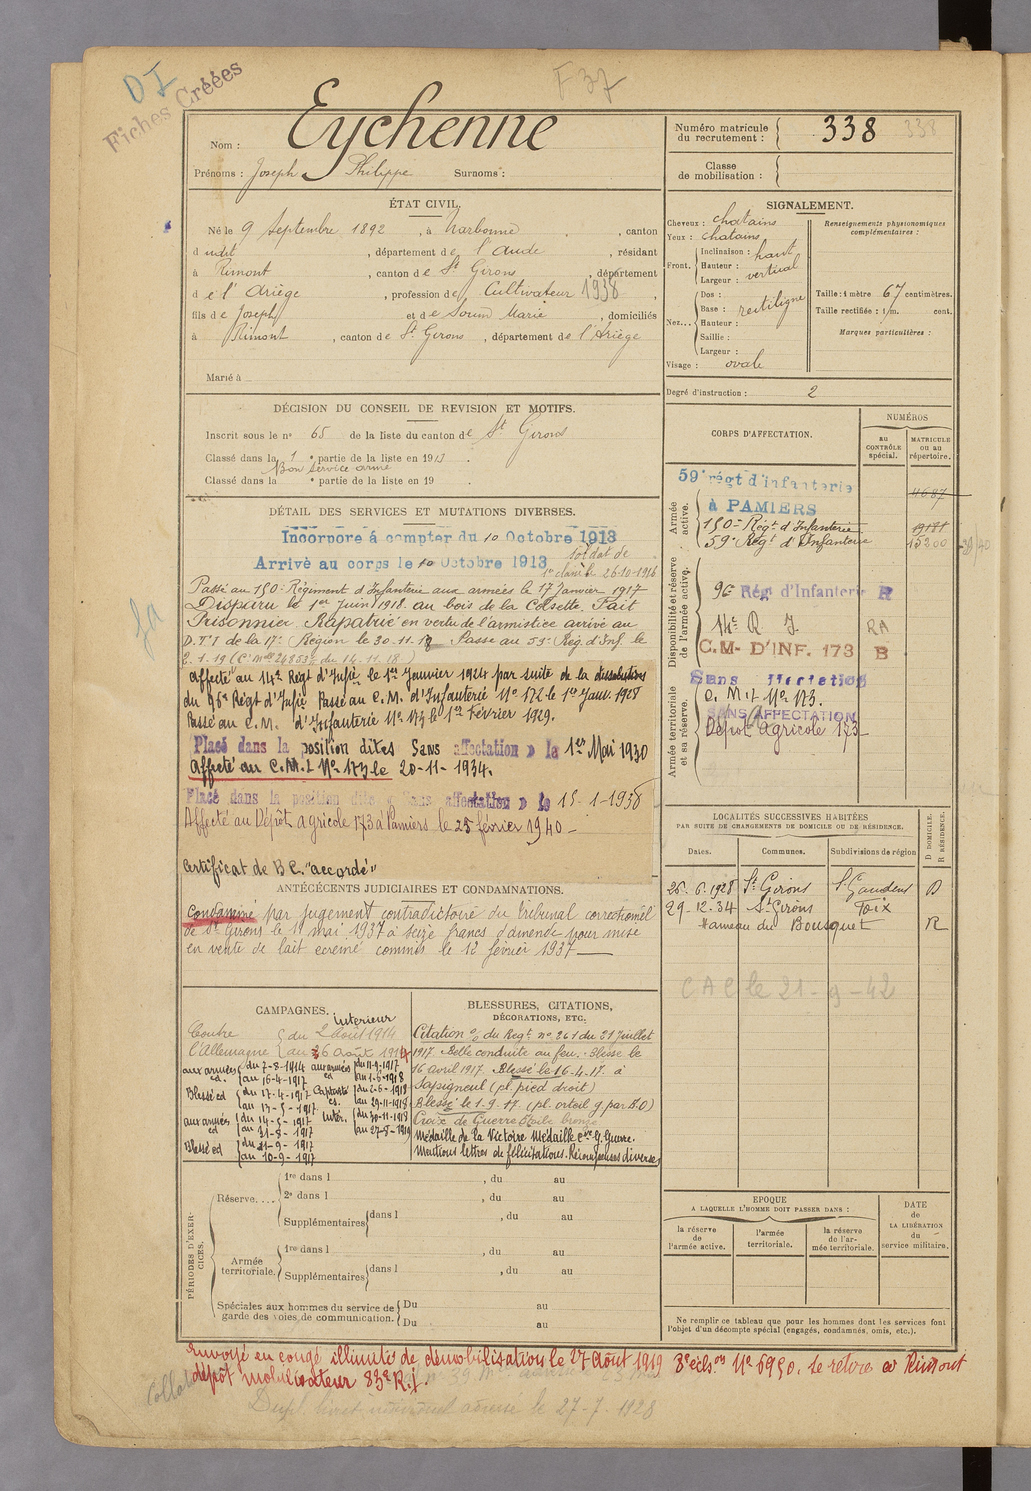 D I
Fiches Créées
F 37
Nom : Eychenne
Prénoms : Joseph Philippe Surnoms :
Numéro matricule du recrutement : 338 338
Classe de mobilisation :
ÉTAT CIVIL.
Né le 9 Septembre 1892, à Narbonne, canton
dudit, département de l'Aude, résidant
à Rimont, canton de St Girons, département
de l'Ariège, profession de Cultivateur 1938,
fils de Joseph et de Soum Marie, domiciliés
à Rimont, canton de St Girons, département de l'Ariège
Marié à
SIGNALEMENT.
Cheveux : chatains
Yeux : chatains
Front. Inclinaison : haut
Hauteur : vertical
Largeur :
Nez... Dos :
Base : rectiligne
Hauteur :
Saillie :
Largeur :
Visage : ovale
Renseignements physionomiques complémentaires :
Taille : 1 mètre 67 centimètres.
Taille rectifiée : 1 m. cent.
Marques particulières :
Degré d'instruction : 2
DÉCISION DU CONSEIL DE REVISION ET MOTIFS.
Inscrit sous le n° 65 de la liste du canton de St Girons
Classé dans la 1e partie de la liste en 1913.
Bon Service armé
Classé dans la e partie de la liste en 19 .
DÉTAIL DES SERVICES ET MUTATIONS DIVERSES.
Incorporé à compter du 10 Octobre 1913
Arrivé au corps le 10 Octobre 1913 soldat de
1e classe le 26-10-1916
Passé au 150e Régiment d'Infanterie aux armées le 17 Janvier 1917
Disparu le 1er Juin 1918 au bois de la Cosette. Fait
Prisonnier. Rapatrié en vertu de l'armistice arrivé au
D.T.I de la 17e Région le 30.11.18 Passé au 59e Rég. d'Inf. le
2.1.19 (C. Mlle 24853 du 14.11.18)
Affecté au 14e Régt d'Infie le 1er Janvier 1924 par suite de la dissolution
du 96e Régt d'Infie Passé au C.M. d'Infanterie N° 172 le 1er Janv. 1928
Passé au C.M. d'Infanterie N° 173 le 1er Février 1929.
Placé dans la position dites Sans affectation » le 1er Mai 1930
Affecté au C.M.I N° 173 le 20-11-1934.
Placé dans la position dite « Sans affectation » le 15-1-1938
Affecté au Dépôt agricole 173 à Pamiers le 25 février 1940 -
Certificat de B C. "accordé"
CORPS D'AFFECTATION.
NUMÉROS
au CONTRÔLE spécial.
MATRICULE ou au répertoire.
Armée active.
59e régt d'infanterie
à PAMIERS 11687
150e Régt d'Infanterie
59e Régt d'Infanterie 15200
Disponibilité et réserve de l'armée active.
96 Rég d'Infanterie R
14e R. I. RA
C.M- D'INF. 173 B
Armée territoriale et sa réserve.
Sans affectation
C.M.I. N° 173.
SANS AFFECTATION
Dépôt agricole 173
ANTÉCÉDENTS JUDICIAIRES ET CONDAMNATIONS.
Condamné par jugement contradictoire du tribunal correctionnel
de St Girons le 1er mai 1937 à seize francs d'amende pour mise
en vente de lait écrémé commis le 12 février 1937
LOCALITÉS SUCCESSIVES HABITÉES
PAR SUITE DE CHANGEMENTS DE DOMICILE OU DE RÉSIDENCE.
Dates. Communes. Subdivisions de région D DOMICILE. R RÉSIDENCE.
26.6.1928 St Girons St Gaudens D
29-12-34 St Girons Foix
Hameau du Bousquet R
CAC le 21-9-42
CAMPAGNES.
Contre l'Allemagne
du 2 Août 1914 Intérieur
au 6 Août 1914
aux armées du 7-8-1914
au 16-4-1917
Blessé du 17-4-1917
au 13-5-1917
aux armées du 14-5-1917
au 31-8-1917
Blessé du 1-9-1917
au 10-9-1917
aux armées du 11-9-1917
au 1-6-1918
Captivité du 2-6-1918
au 29-11-1918
Intér. du 30-11-1918
au 27-8-1919
BLESSURES, CITATIONS,
DÉCORATIONS, ETC.
Citation o/ du Régt n° 261 du 31 Juillet
1917. Belle conduite au feu. Blessé le
16 avril 1917. Blessé le 16.4.17. à
Sapigneul (pl. pied droit)
Blessé le 1.9.17. (pl. orteil g par E.O)
Croix de Guerre Etoile bronze
Médaille de la Victoire Médaille C<sup>ve</sup> G. Guerre.
Mentions lettres de félicitations. Récompenses diverses
PÉRIODES D'EXERCICES.
Réserve....
1re dans l , du au
2e dans l , du au
Supplémentaires dans l , du au
Armée territoriale.
1re dans l , du au
Supplémentaires dans l , du au
Spéciales aux hommes du service de garde des voies de communication.
Du au
Du au
EPOQUE
A LAQUELLE L'HOMME DOIT PASSER DANS :
la réserve de l'armée active.
l'armée territoriale.
la réserve de l'armée territoriale.
DATE de LA LIBÉRATION du service militaire.
Ne remplir ce tableau que pour les hommes dont les services font
l'objet d'un décompte spécial (engagés, condamnés, omis, etc.).
Envoyé en congé illimité de démobilisation le 27 Août 1919 3e écheon N° 6950. Se retire à Rimont
dépôt mobilisateur 83e R.I.
Dupl. livret individuel adressé le 27-7-1928